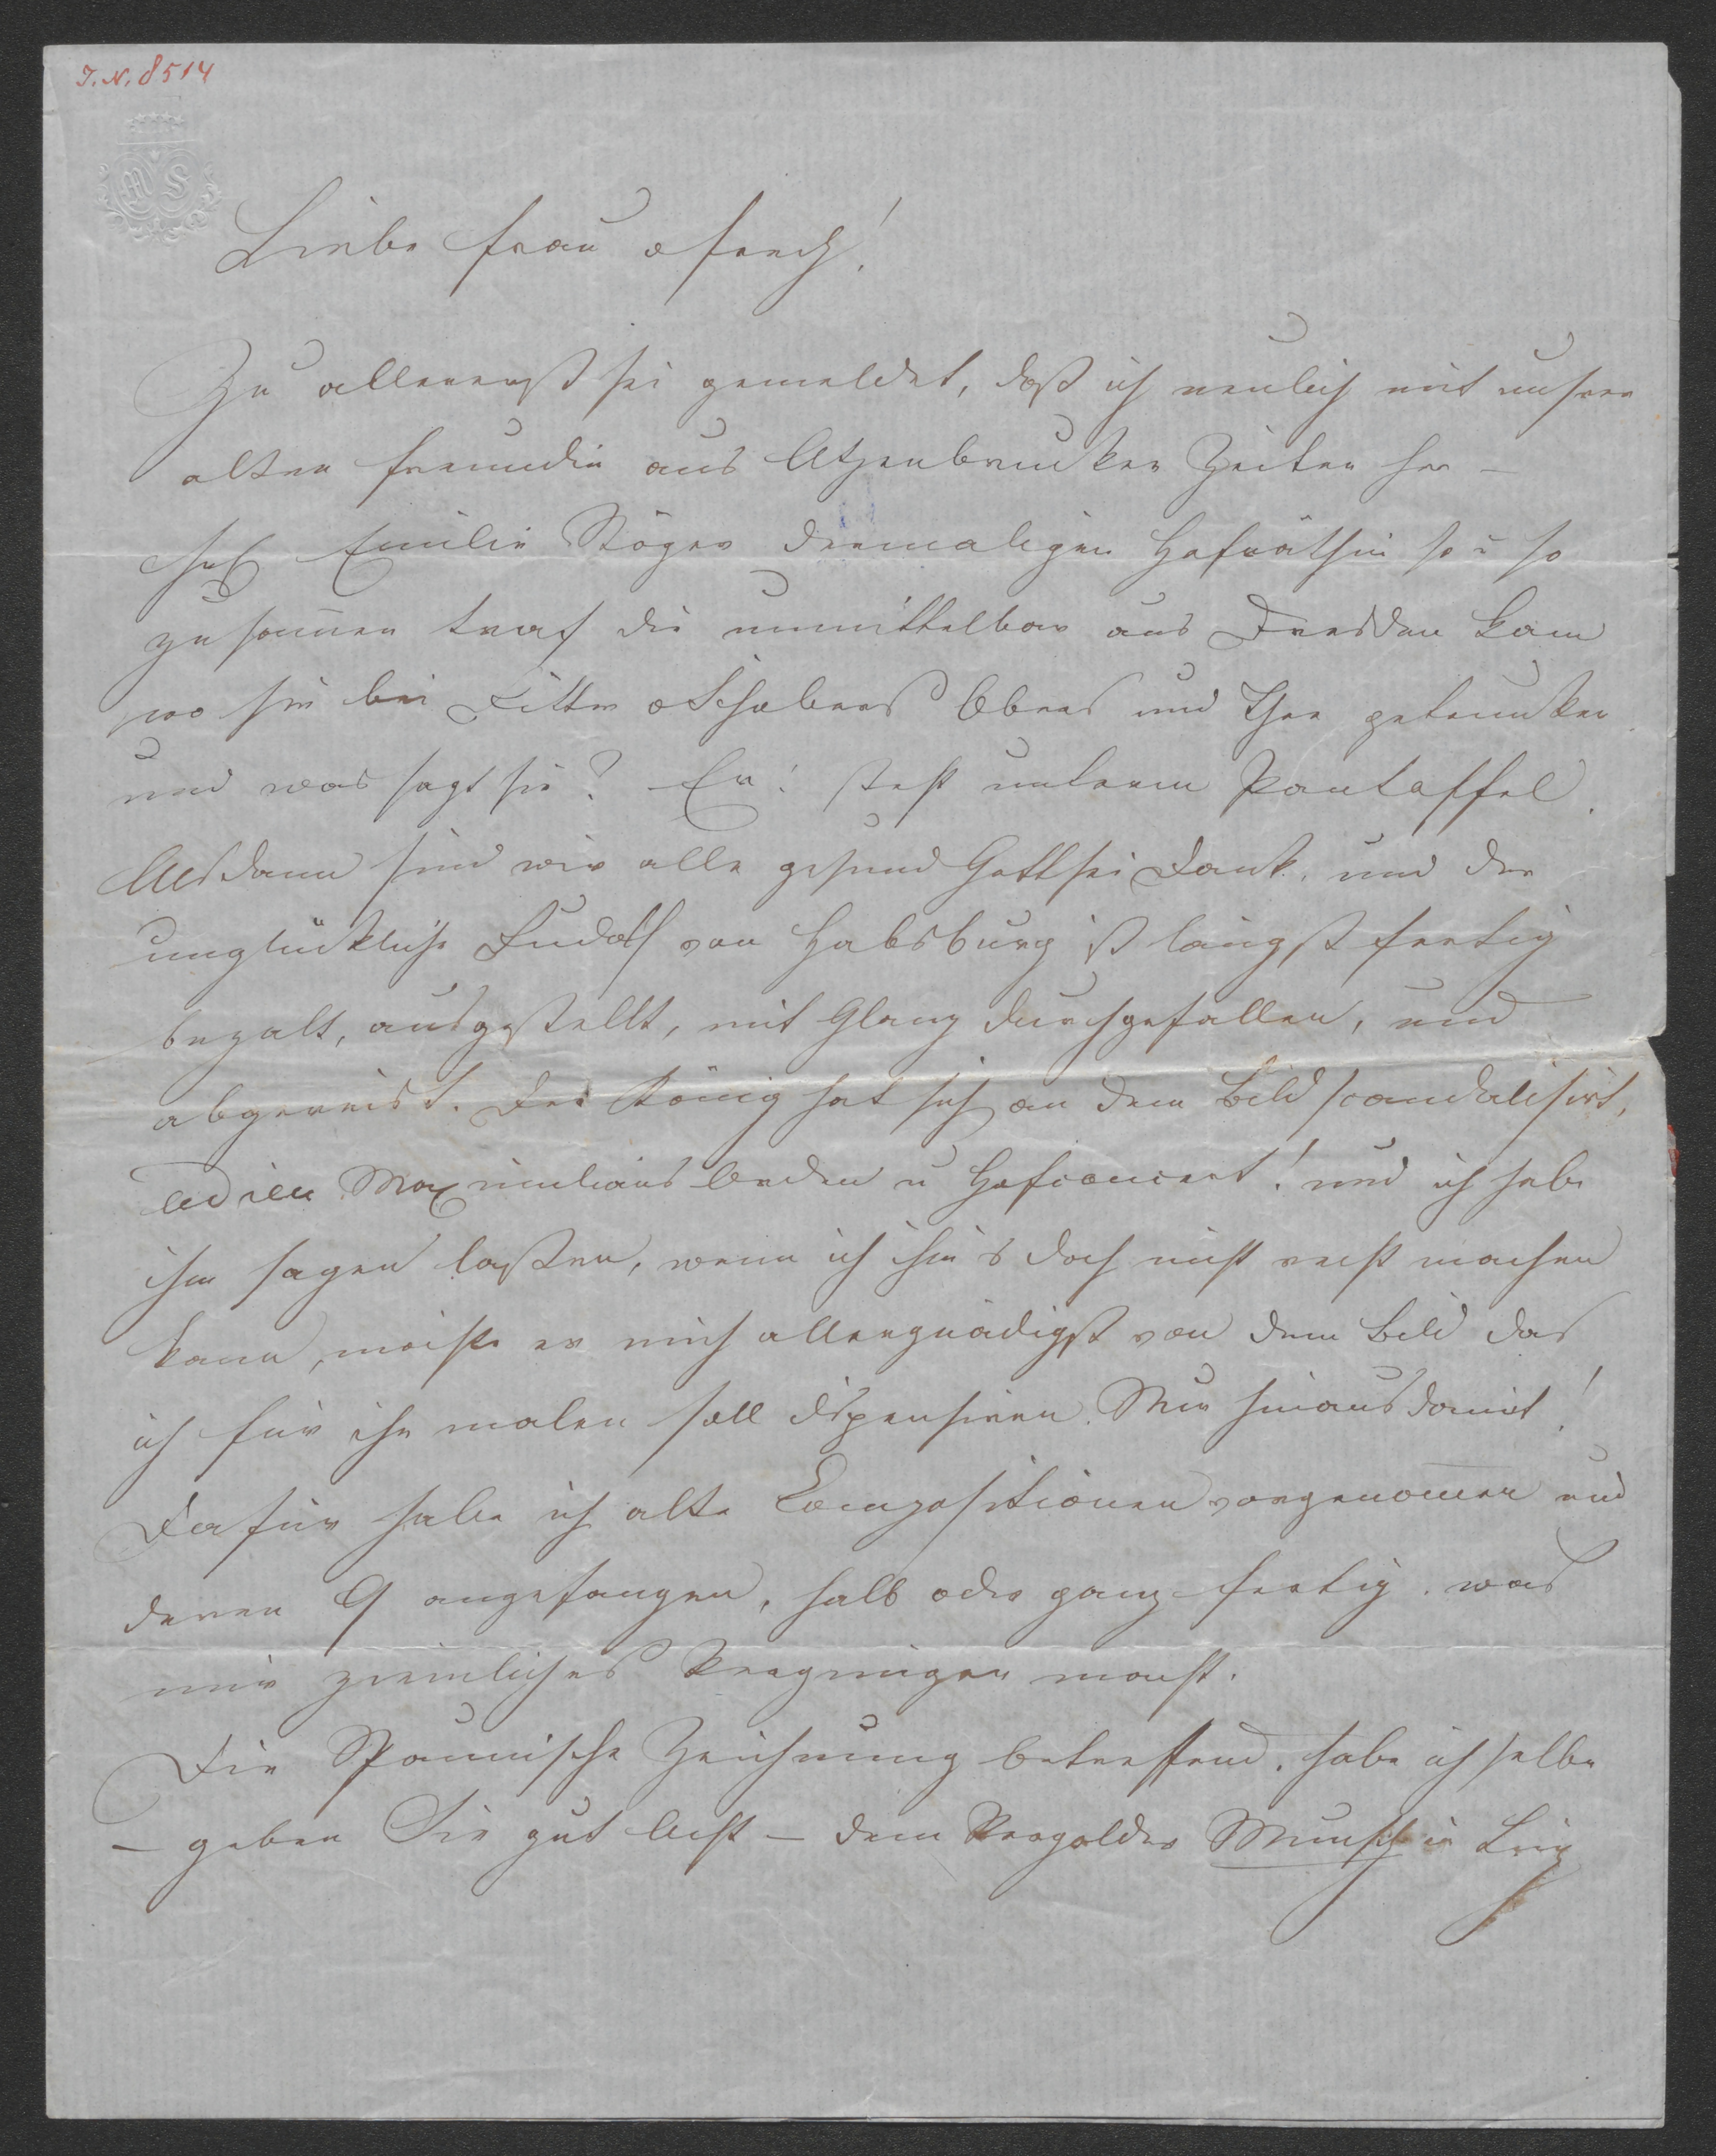 I.N. 8514
MS
Liebe Frau v Frech!
Zu allererst sei gemeldet, daß ich neulich mit unserer
alten Freundin aus Atzenbrucker Zeiten her –
Emilie Stöger dermaligen Hofräthin so u so
zusam̄en traf die unmittelbar aus Dresden kam
wo sie bei Ritter v Schobers Obers und Thee getrunken
und was sagt sie? Er! steht unterm Pantoffel.
Alsdann sind wir alle gesund Gott sei Dank. und der
unglückliche Rudolf von Habsburg ist längst fertig
bezalt, ausgestellt, mit Glanz durchgefallen, und
abgereist. Der König hat sich an dem Bild scandalisirt,
adieu Maximilians Orden u Hofconcert! und ich habe
ihm sagen laßen, wenn ich ihm's doch nicht recht machen
kann, möchte er mich allergnädigst von dem Bild das
ich für ihn malen soll dispensiren. Nur hinaus damit!
Dafür habe ich alte Compositionen vorgenom̄en und
deren 9 angefangen, halb oder ganz fertig. was
mir ziemliches Vergnügen macht.
Die Spaunische Zeichnung betreffend. habe ich selbe
– geben Sie gut Acht – dem Vergolder Munsch in Linz